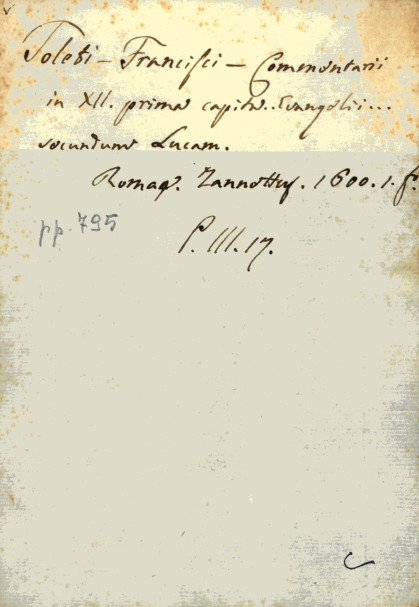 Toleti - Francisci - Comentarii
in XII. prima capita.. Evangelii...
secundum Lucam.
Romae. Zannettus. 1600. 1. f.
pp. 795
P. III. 17.